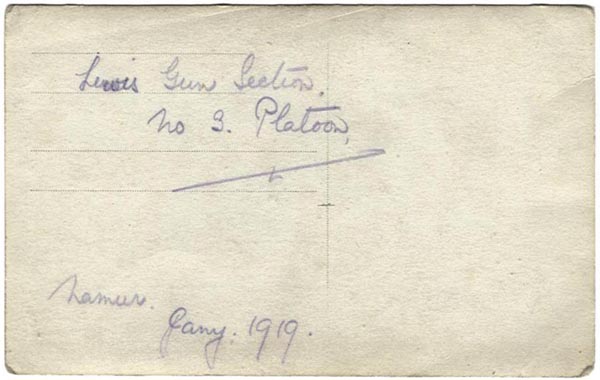 Lewis Gun Section.
No 3. Platoon,
Namur.
Jany. 1919.